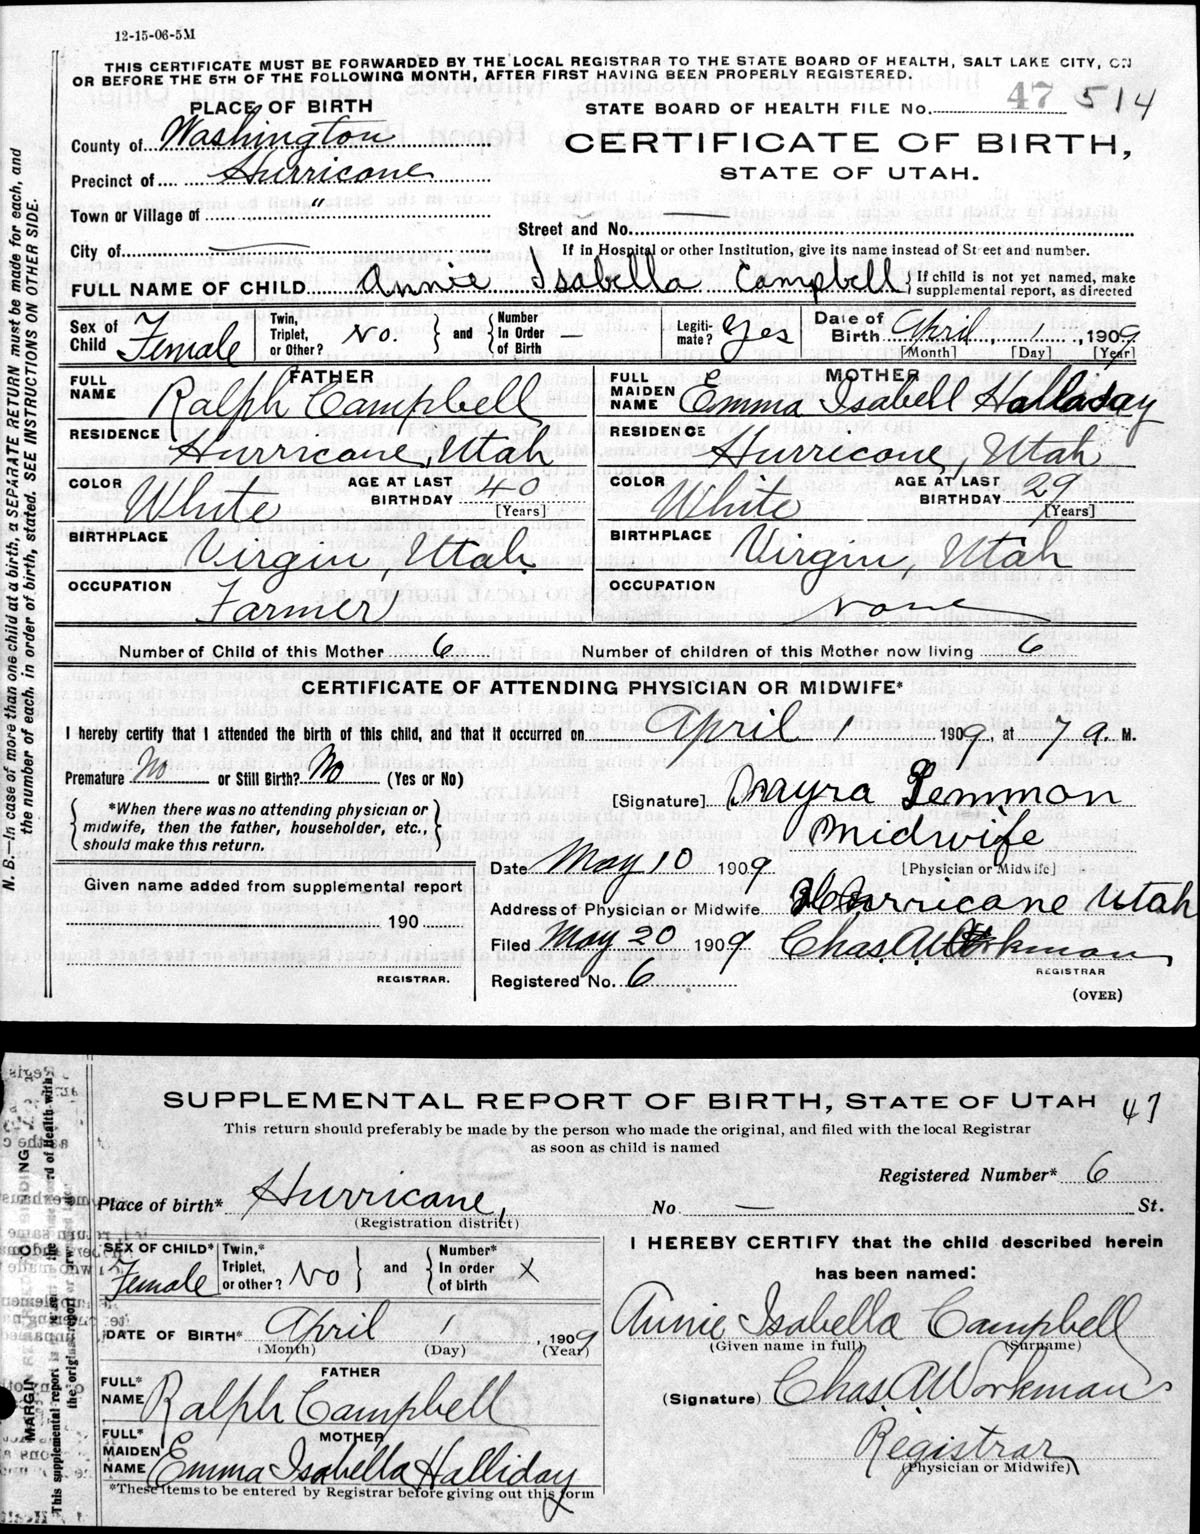 12-15-06-5M
THIS CERTIFICATE MUST BE FORWARDED BY THE LOCAL REGISTRAR TO THE STATE BOARD OF HEALTH, SALT LAKE CITY, ON
OR BEFORE THE 5TH OF THE FOLLOWING MONTH, AFTER FIRST HAVING BEEN PROPERLY REGISTERED.
PLACE OF BIRTH
STATE BOARD OF HEALTH FILE No. 47 514
County of Washington
CERTIFICATE OF BIRTH,
STATE OF UTAH.
Precinct of Hurricane
Town or Village of "
Street and No.
City of
If in Hospital or other Institution, give its name instead of Street and number.
FULL NAME OF CHILD Annie Isabella Campbell
If child is not yet named, make
supplemental report, as directed
Sex of Child Female
Twin, Triplet, or Other? No. and Number In Order of Birth —
Legitimate? Yes
Date of Birth April 1, 1909
[Month] [Day] [Year]
FATHER
FULL NAME Ralph Campbell
RESIDENCE Hurricane, Utah
COLOR White AGE AT LAST BIRTHDAY 40
[Years]
BIRTHPLACE Virgin, Utah
OCCUPATION Farmer
MOTHER
FULL MAIDEN NAME Emma Isabell Halladay
RESIDENCE Hurricane, Utah
COLOR White AGE AT LAST BIRTHDAY 29
[Years]
BIRTHPLACE Virgin, Utah
OCCUPATION None
Number of Child of this Mother 6 Number of children of this Mother now living 6
CERTIFICATE OF ATTENDING PHYSICIAN OR MIDWIFE*
I hereby certify that I attended the birth of this child, and that it occurred on April 1 1909, at 7 a. M.
Premature No or Still Birth? No (Yes or No)
*When there was no attending physician or
midwife, then the father, householder, etc.,
should make this return.
[Signature] Mayra Lemmon
Midwife
[Physician or Midwife]
Date May 10 1909
Address of Physician or Midwife Hurricane Utah
Filed May 20 1909 Chas. A. Workman
REGISTRAR
Registered No. 6
(OVER)
Given name added from supplemental report
190
REGISTRAR.
N. B.—In case of more than one child at a birth, a SEPARATE RETURN must be made for each, and
the number of each, in order of birth, stated. SEE INSTRUCTIONS ON OTHER SIDE.
SUPPLEMENTAL REPORT OF BIRTH, STATE OF UTAH 47
This return should preferably be made by the person who made the original, and filed with the local Registrar
as soon as child is named
Registered Number* 6
Place of birth* Hurricane, No — St.
(Registration district)
SEX OF CHILD* Female
Twin,* Triplet, or other? No and Number* In order of birth X
DATE OF BIRTH* April 1, 1909
(Month) (Day) (Year)
FATHER
FULL* NAME Ralph Campbell
MOTHER
FULL* MAIDEN NAME Emma Isabella Halliday
*These items to be entered by Registrar before giving out this form
I HEREBY CERTIFY that the child described herein
has been named:
Annie Isabella Campbell
(Given name in full) (Surname)
(Signature) Chas. A. Workman
Registrar
(Physician or Midwife)